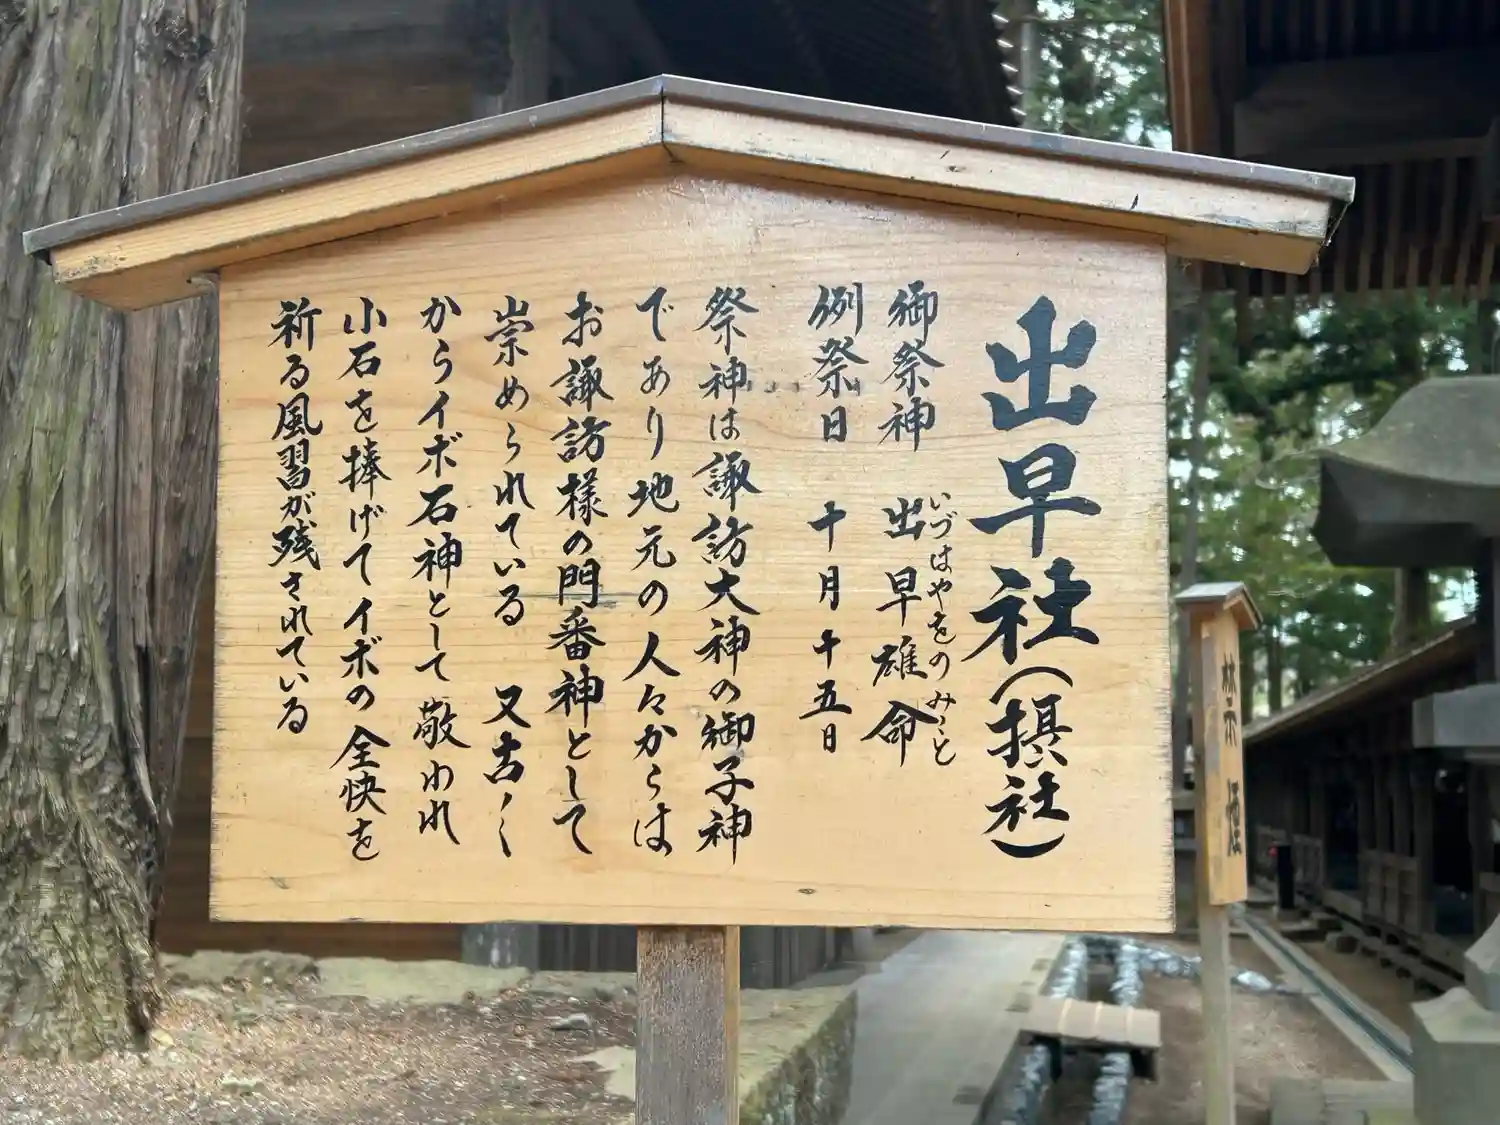 出早社(摂社)
御祭神 出早雄命
いづはやをのみこと
例祭日 十月十五日
祭神は諏訪大神の御子神
であり地元の人々からは
お諏訪様の門番神として
崇められている 又古く
からイボ石神として敬われ
小石を捧げてイボの全快を
祈る風習が残されている
禁煙